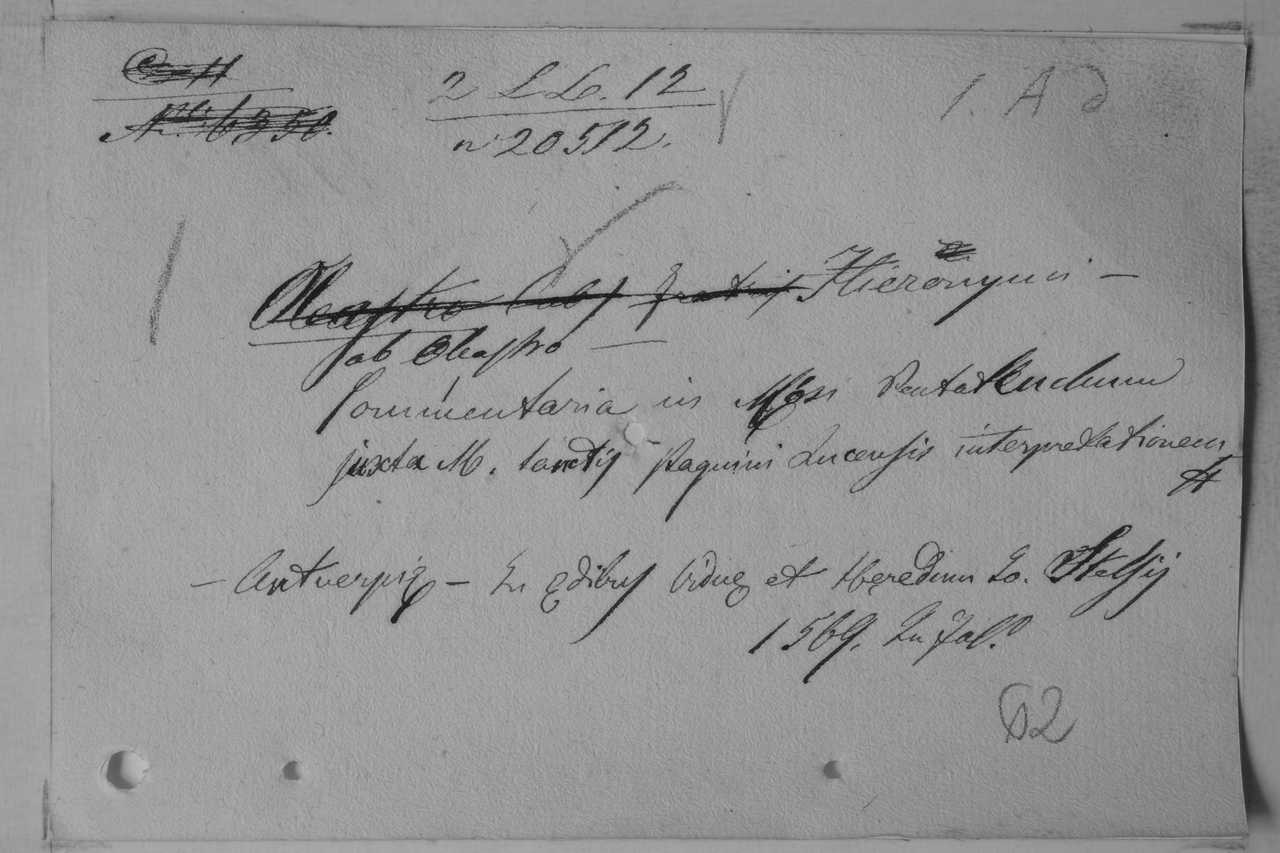 2 L L. 12
n 20512.
1. A d
Oleastro (ab) fratris Hieronymi —
ab Oleastro —
Commentaria in Mosi Pentateuchum
juxta M. Sanctis Pagnini Lucensis interpretationem
— Antverpię — In ędibus Viduę et Hęredum Io. Stelsij
1569. In fol.º
62